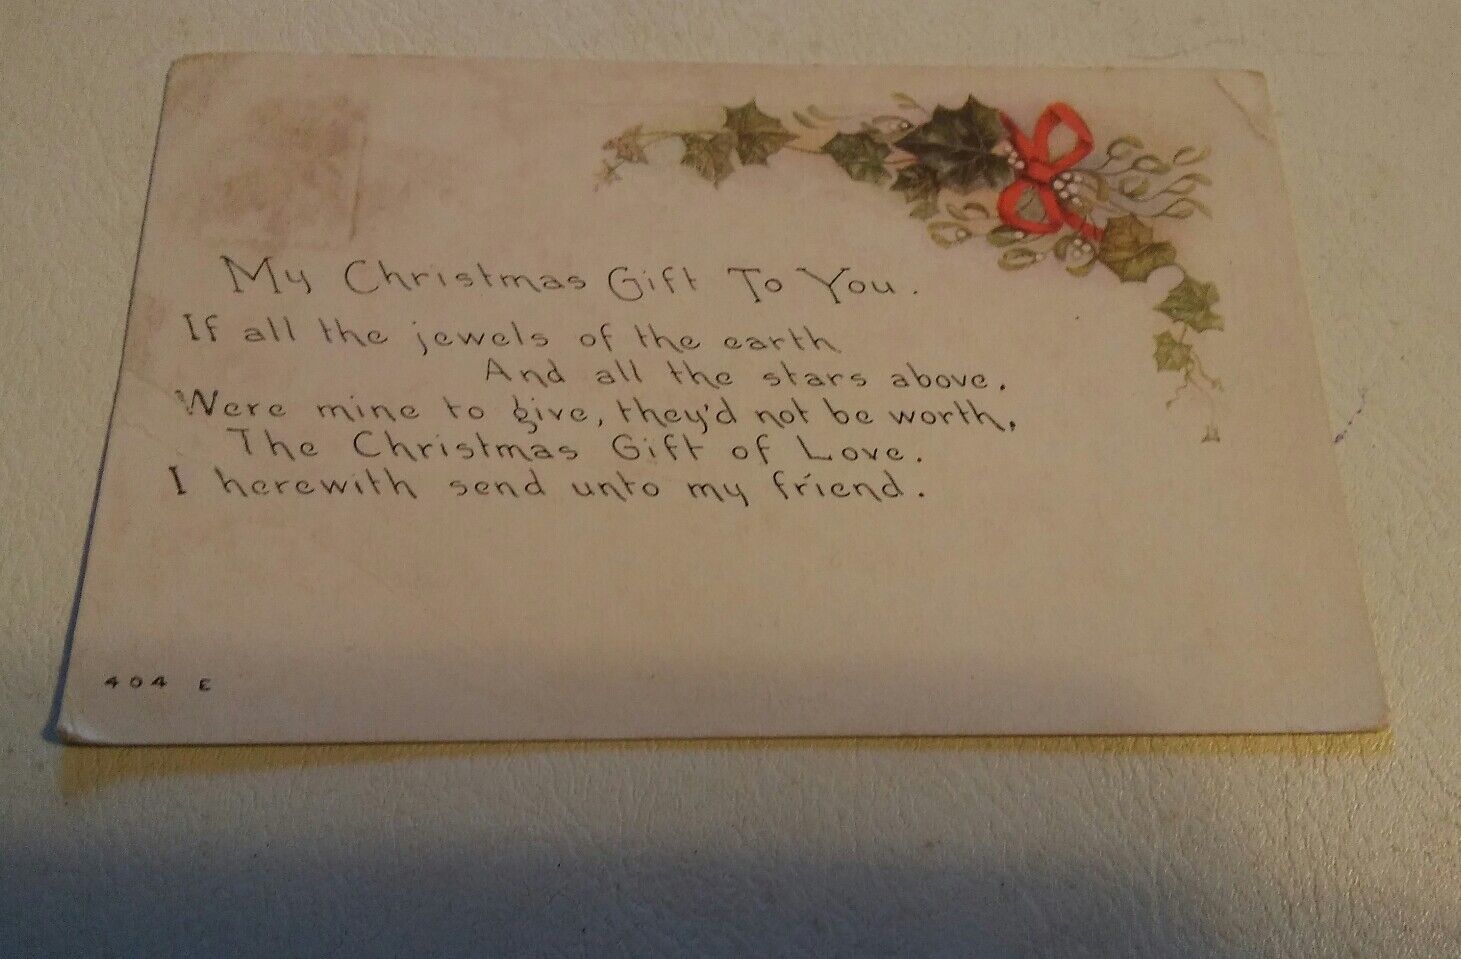 My Christmas Gift To You.
If all the jewels of the earth
And all the stars above.
Were mine to give, they'd not be worth,
The Christmas Gift of Love.
I herewith send unto my friend.
404 E